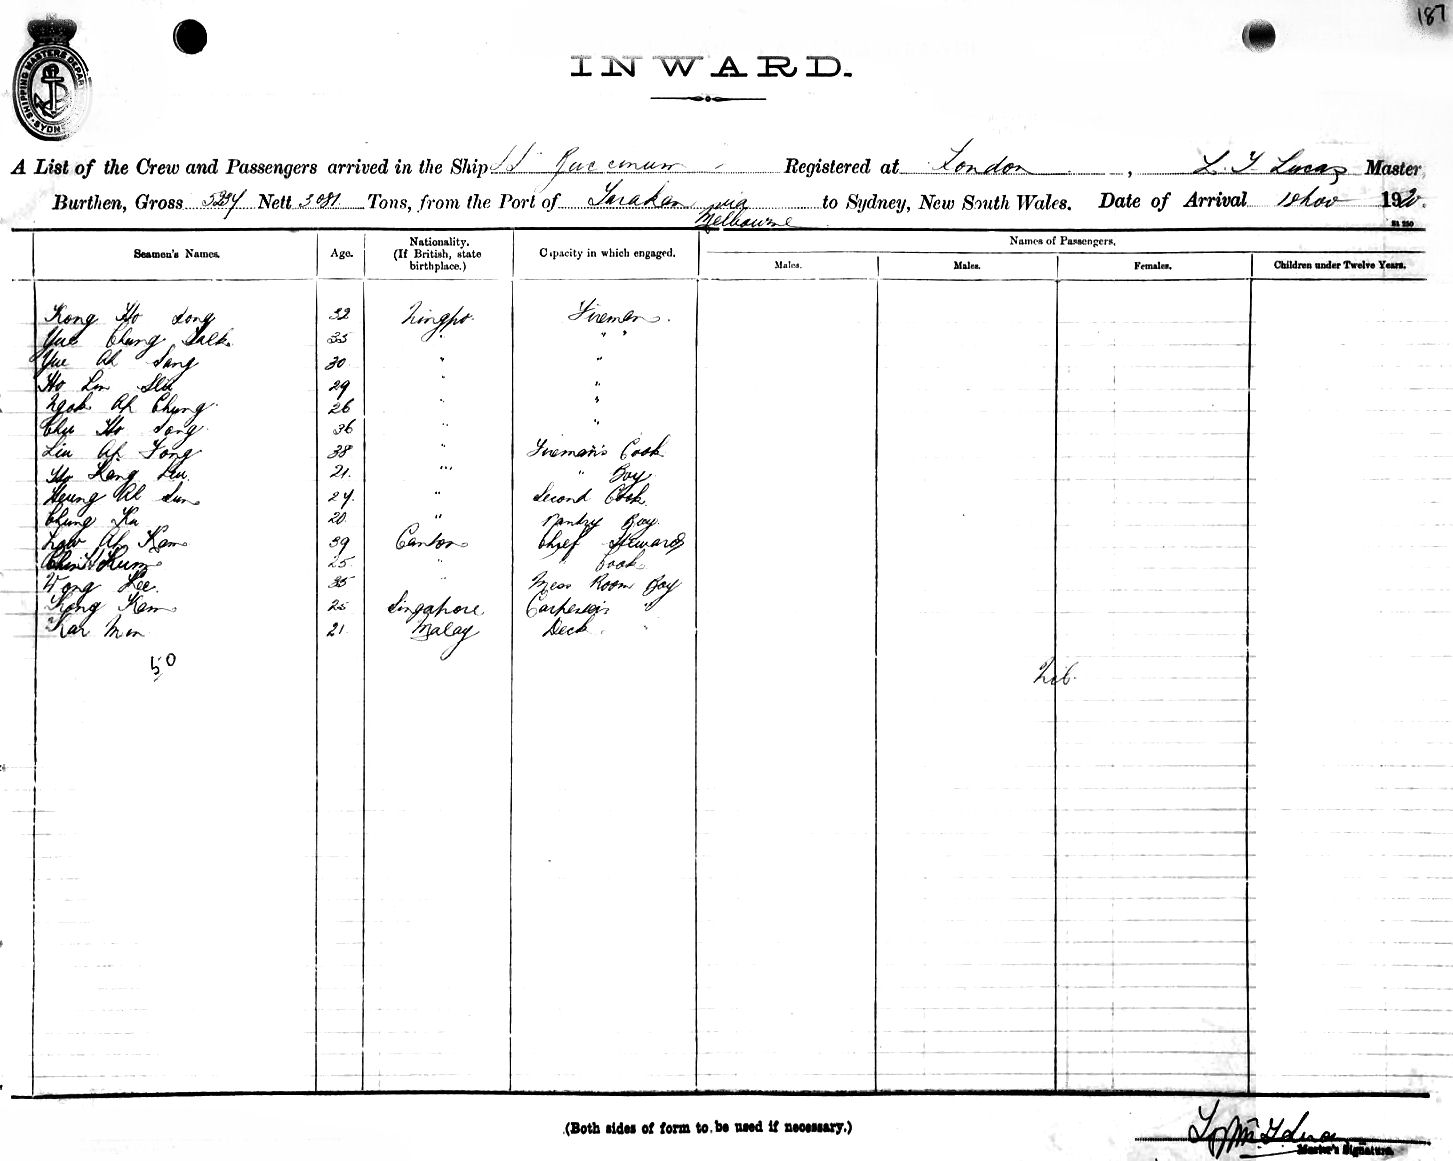 187
SHIPPING MASTERS DEPART
SYDN
INWARD.
A List of the Crew and Passengers arrived in the Ship SS Buccinum Registered at London, L. F. Lucas Master,
Burthen, Gross 5234 Nett 3081 Tons, from the Port of Tarakan via Melbourne to Sydney, New South Wales. Date of Arrival 18 Nov 1920.
Names of Passengers.
Seamen's Names. Age. Nationality. (If British, state birthplace.) Capacity in which engaged. Males. Males. Females. Children under Twelve Years.
Kong Ho Song 32 Ningpo Fireman.
Yue Chung 35 " "
Yue Ah Sang 30 " "
Ho Lin 29 " "
Ngok Ah Chung 26 " "
Chu Ho Song 36 " "
Liu Ah Fong 38 " Fireman's Cook
Ho Kang 21 " " Boy
Heung Ah Sun 24 " Second Cook
Chung Ka 20 " Pantry Boy
Low Ah Kam 39 Canton Chief Steward
Kum 25 " Cook
Wong Kee 35 " Mess Room Boy
Kam 25 Singapore Carpenter "
Kar Min 21 Malay Deck "
50
Nil
(Both sides of form to be used if necessary.)
Master's Signature.